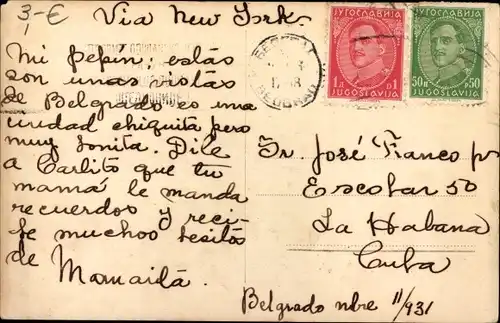 3,-€
Via New York.
Mi Pepín: estás
son unas vistas
de Belgrado es una
ciudad chiquita pero
muy bonita. Dile
a Carlito que tu
mamá le manda
recuerdos y reci-
be muchos besitos
de
Mamaitá
BEOGRAD
ЈУГОСЛАВИЈА
1 Д D 1
JUGOSLAVIJA
ЈУГОСЛАВИЈА
50 П P 50
JUGOSLAVIJA
Sr. José Franco
Escobar 50
La Habana
Cuba
Belgrado nbre 11/931